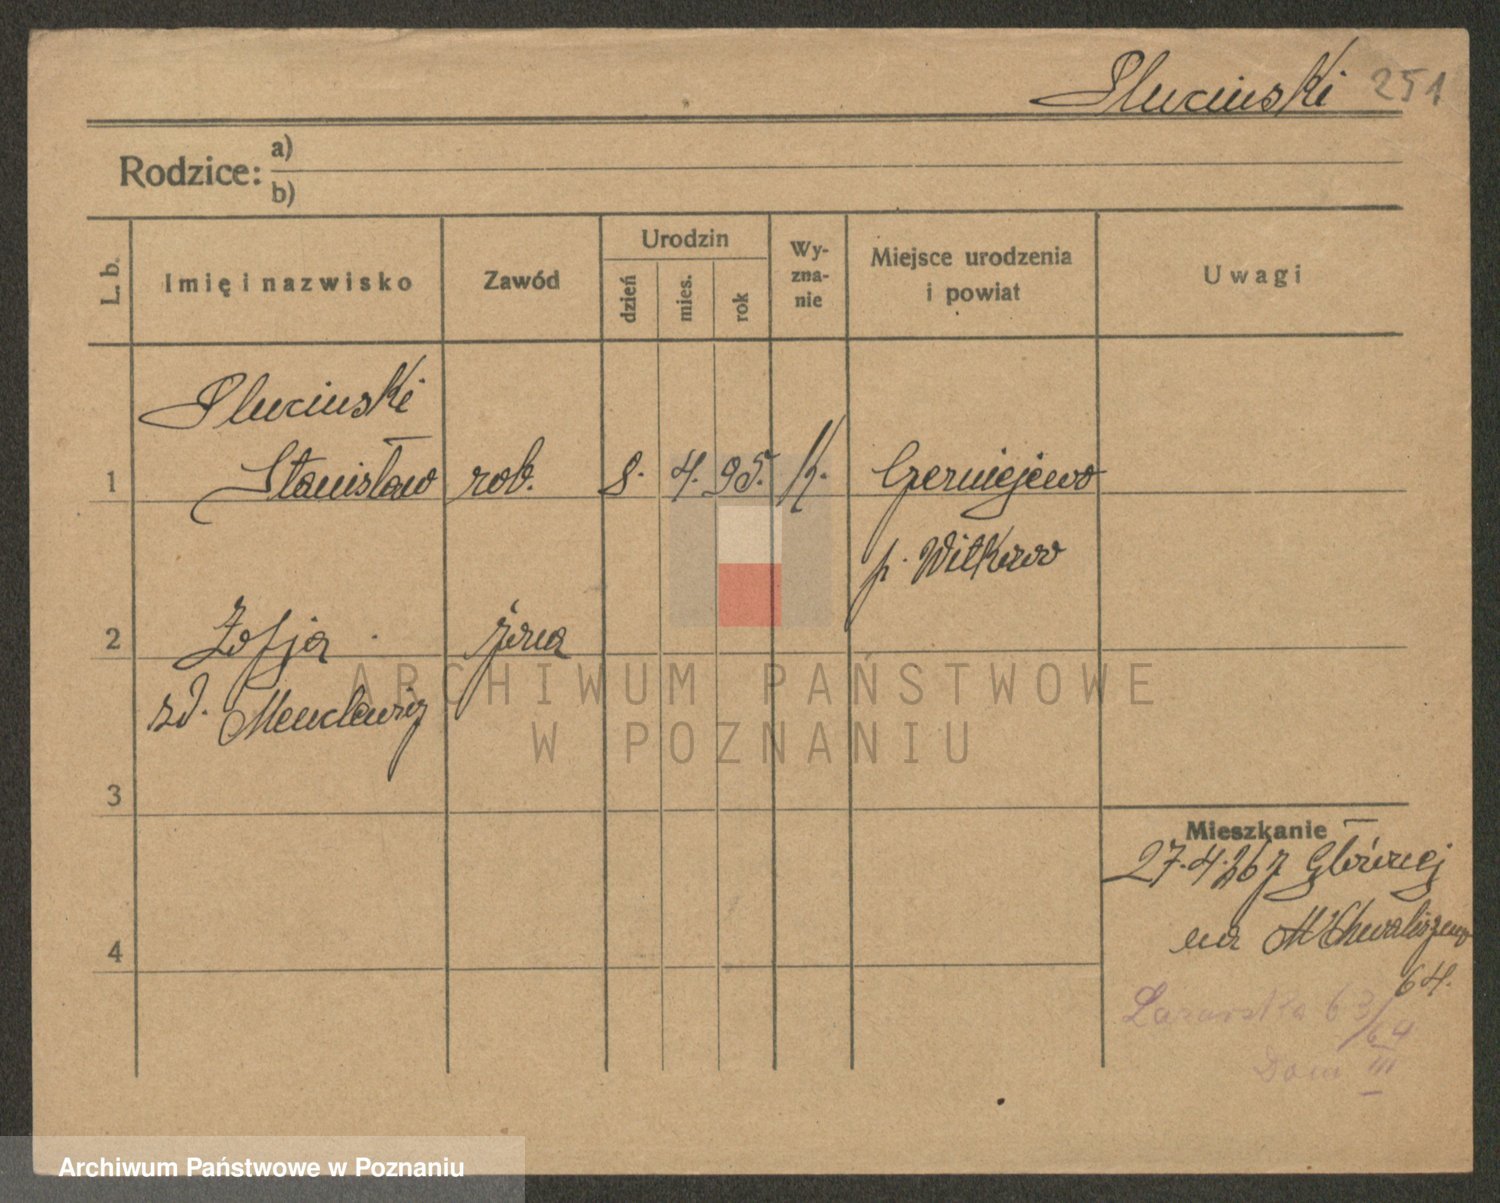 Pluciński 251
Rodzice: a)
b)
L. b. Imię i nazwisko Zawód Urodzin dzień mies. rok Wy-zna-nie Miejsce urodzenia i powiat Uwagi
Pluciński
1 Stanisław rob. 8. 4. 95. K. Czerniejewo
p. Witkowo
2 Zofja żona
zd. Menclewicz
3
Mieszkanie
27.4.26 z Głównej
na
64.
4
Łazarska 63/64
Dom III
ARCHIWUM PAŃSTWOWE
W POZNANIU
Archiwum Państwowe w Poznaniu